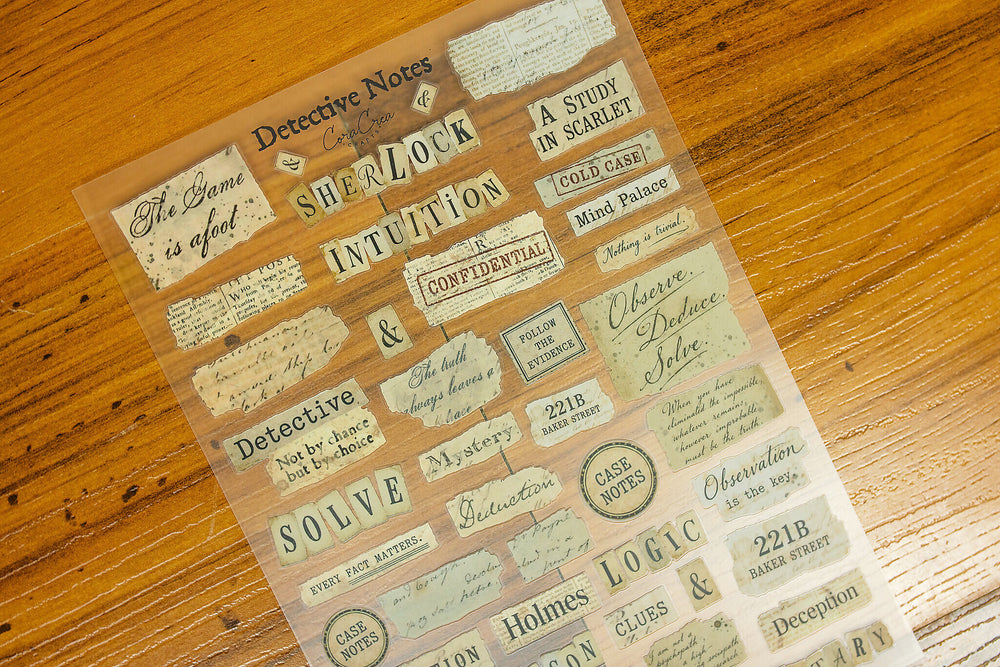 Detective Notes
CoraCrea
CRAFTS
&
&
The Game
is afoot
SHERLOCK
INTUITION
A STUDY
IN SCARLET
COLD CASE
Mind Palace
Nothing is trivial.
POST
WHO
R
CONFIDENTIAL
&
FOLLOW
THE
EVIDENCE
Observe.
Deduce.
Solve.
The truth
always leaves a
trace
Detective
Not by chance
but by choice
221B
BAKER STREET
When you have
eliminated the impossible,
whatever remains,
however improbable
must be the truth.
Mystery
SOLVE
Deduction
CASE
NOTES
Observation
is the key.
EVERY FACT MATTERS.
LOGIC
&
221B
BAKER STREET
CASE
NOTES
Holmes
CLUES
Deception
I am not a
psychopath
high